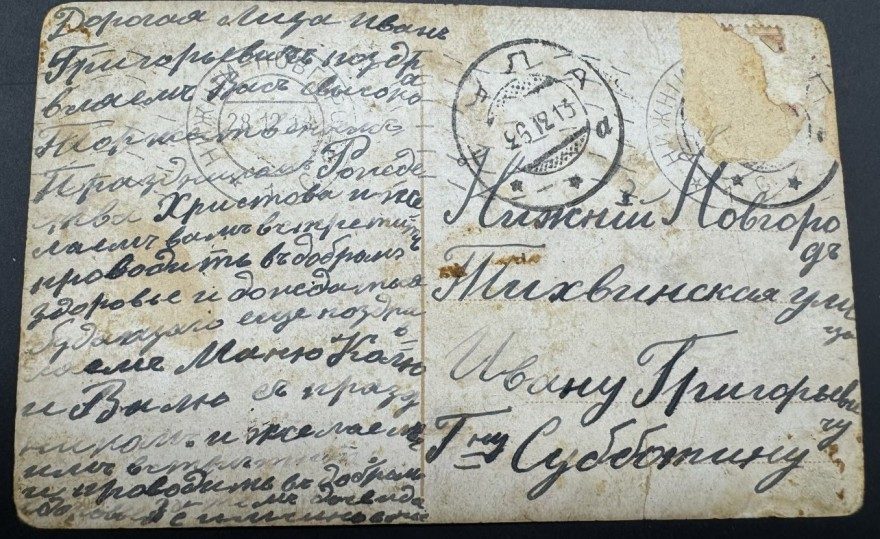 Дорогая Лиза Иванъ
Григорьевичъ поздра
вляемъ Васъ свысоко
Торжественымъ
Праздникам Рожде
ства Христова и же
лаемъ вамъ встретить
проводить въ добрамъ
здоровье и дождаться
будащаго еще поздра
вляемъ Маню Колю
и Валю с празд
никам. и желаемъ
имъ встретить
и проводить въ добрам
АЛА а
26.12.13
НИЖНІЙ НОВГОРОДЪ
28.12.13
НИЖНІЙ
Нижній Новгородъ
Тихвинская улица
Ивану Григорьевичу
Гну Субботину